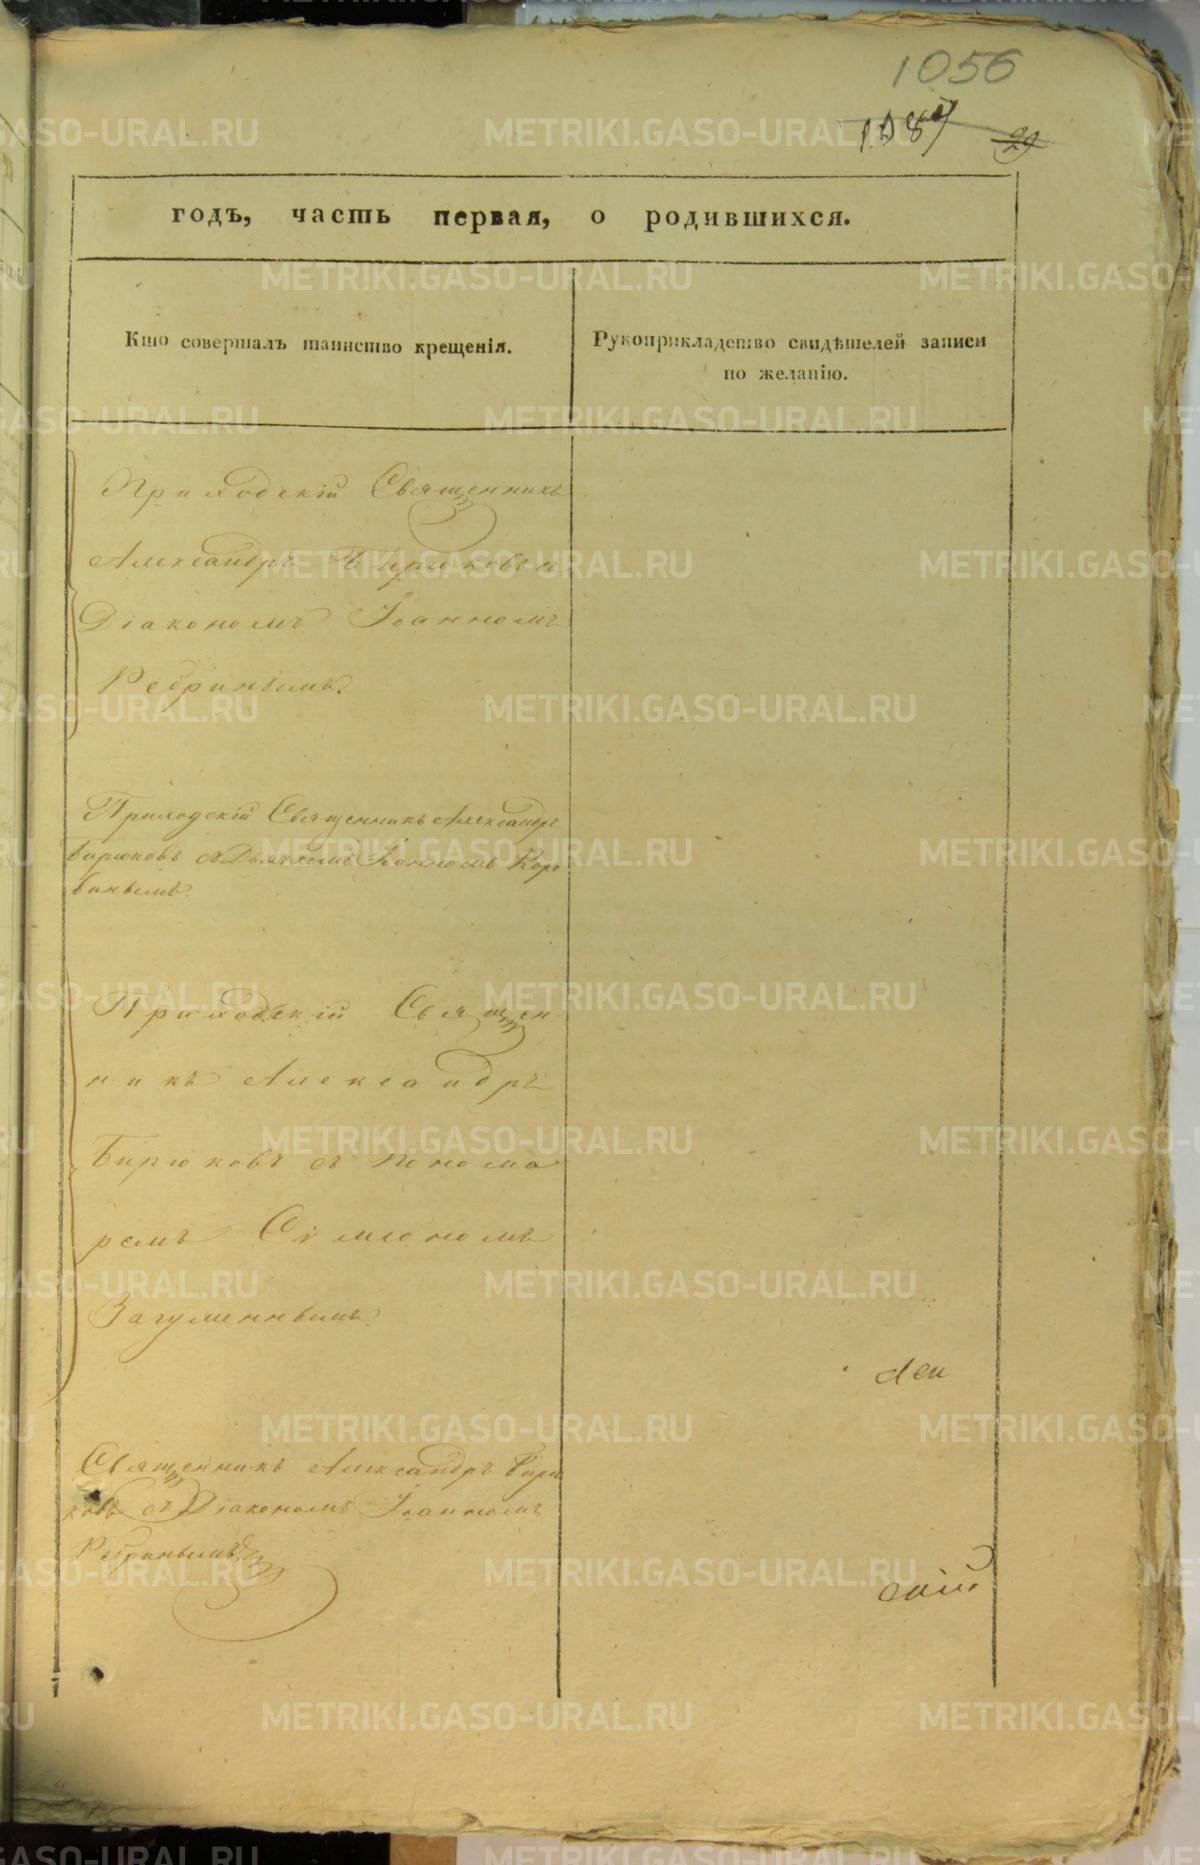 1056
1087
29
годъ, часть первая, о родившихся.
Кто совершалъ таинство крещенія.
Рукоприкладство свидѣтелей записи
по желанію.
Приходскій Священникъ
Александръ Бирюковъ съ
Діакономъ Іоанномъ
Ребринымъ.
Приходскій Священникъ Александръ
Бирюковъ съ Дьячкомъ Іоанномъ Коро
винымъ.
Приходскій Священ-
никъ Александръ
Бирюковъ съ Понома
ремъ Симіономъ
Загуменнымъ.
Священникъ Александръ Бирю
ковъ съ Діакономъ Іоанномъ
Ребринымъ
скій
METRIKI.GASO-URAL.RU